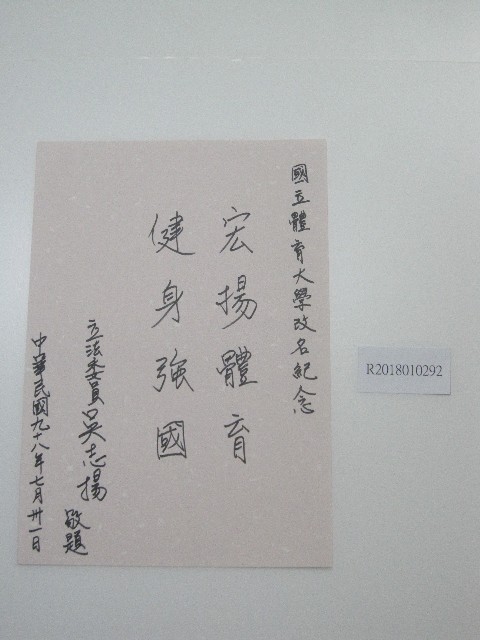 國立體育大學改名紀念
宏揚體育
健身強國
立法委員吳志揚
敬題
中華民國九十八年七月卅一日
R2018010292